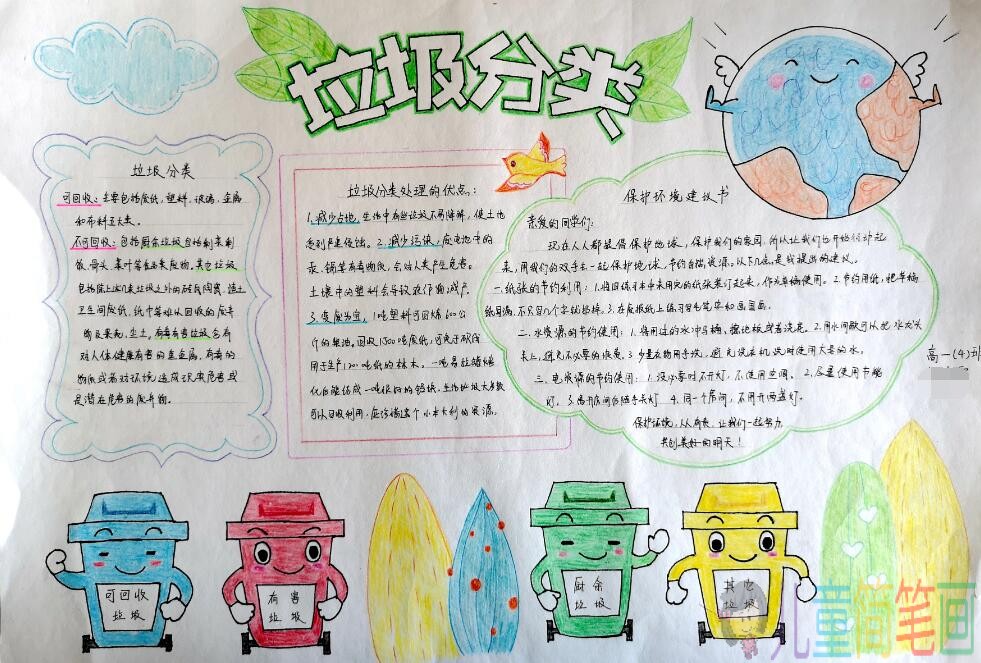 垃圾分类
垃圾分类
可回收:主要包括废纸,塑料,玻璃,金属
和布料五大类.
不可回收:包括厨余垃圾包括剩菜剩
饭,骨头,菜叶等食品类废物.其它垃圾
包括除上述几类垃圾之外的砖瓦陶瓷,渣土
卫生间废纸,纸巾等难以回收的废弃
物及果壳,尘土.有毒有害垃圾含有
对人体健康有害的重金属,有毒的
物质或者对环境造成现实危害或
是潜在危害的废弃物.
垃圾分类处理的优点:
1.减少占地,生活中有些垃圾不易降解,使土地
受到严重侵蚀。2.减少污染,废电池中的
汞、镉等有毒物质,会对人类产生危害。
土壤中的塑料会导致农作物减产
3.变废为宝,1吨塑料可回炼600公
斤的柴油。回收1500吨废纸,可免于砍伐
用于生产1200吨纸的林木。一吨易拉罐熔
化后能结成一吨很好的铝块,生活垃圾大多数
可以回收利用,应珍惜这个小本大利的资源。
保护环境建议书
亲爱的同学们:
现在人人都提倡保护地球,保护我们的家园,所以让我们也开始行动起
来,用我们的双手去一起保护地球,节约自然资源。以下几点,是我提出的建议。
一.纸张的节约利用:1.将旧练习本中未用完的纸张装订起来,作为草稿使用。2.节约用纸,把草稿
纸写满,不只写几个字就扔掉。3.在废报纸上练习写毛笔字和画画。
二.水资源的节约使用:1.将用过的水冲马桶、擦地板或者浇花。2.用水间歇可以把水龙头
关上,避免不必要的浪费。3.少量衣物用手洗,避免洗衣机洗时使用大量的水。
三.电资源的节约使用:1.没必要时不开灯,不使用空调。2.尽量使用节能
灯。3.离开房间后随手关灯 4.同一个房间,不用开两盏灯。
保护环境,从人有责,让我们一起努力,
共创美好的明天!
高一(4)班
可回收
垃圾
有害
垃圾
厨余
垃圾
其它
垃圾
儿童简笔画